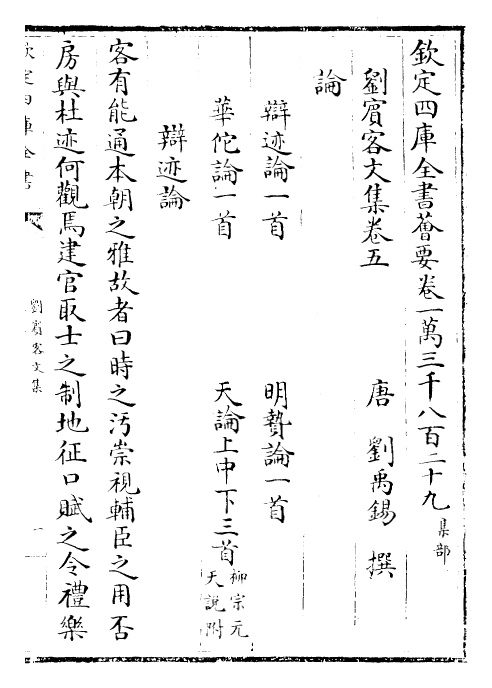 欽定四庫全書薈要卷一萬三千八百二十九 集部
劉賓客文集卷五
唐 劉禹錫 撰
論
辯迹論一首 明贄論一首
華佗論一首 天論上中下三首 柳宗元天說附
辯迹論
客有能通本朝之雅故者曰時之汚崇視輔臣之用否
房與杜迹何觀焉建官取士之制地征口賦之令禮樂
欽定四庫全書
劉賓客文集
一